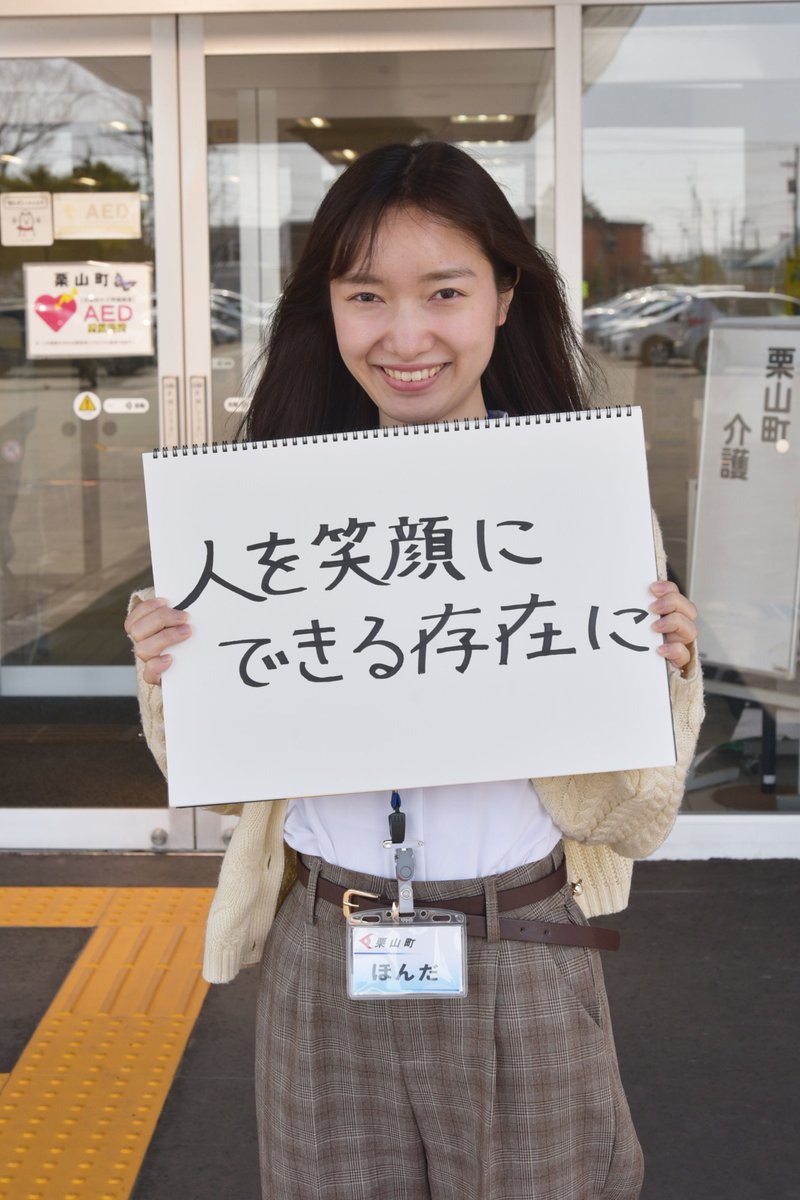 AED
栗山町
AED
人を笑顔に
できる存在に
栗山町
介護
栗山町
ほんだ